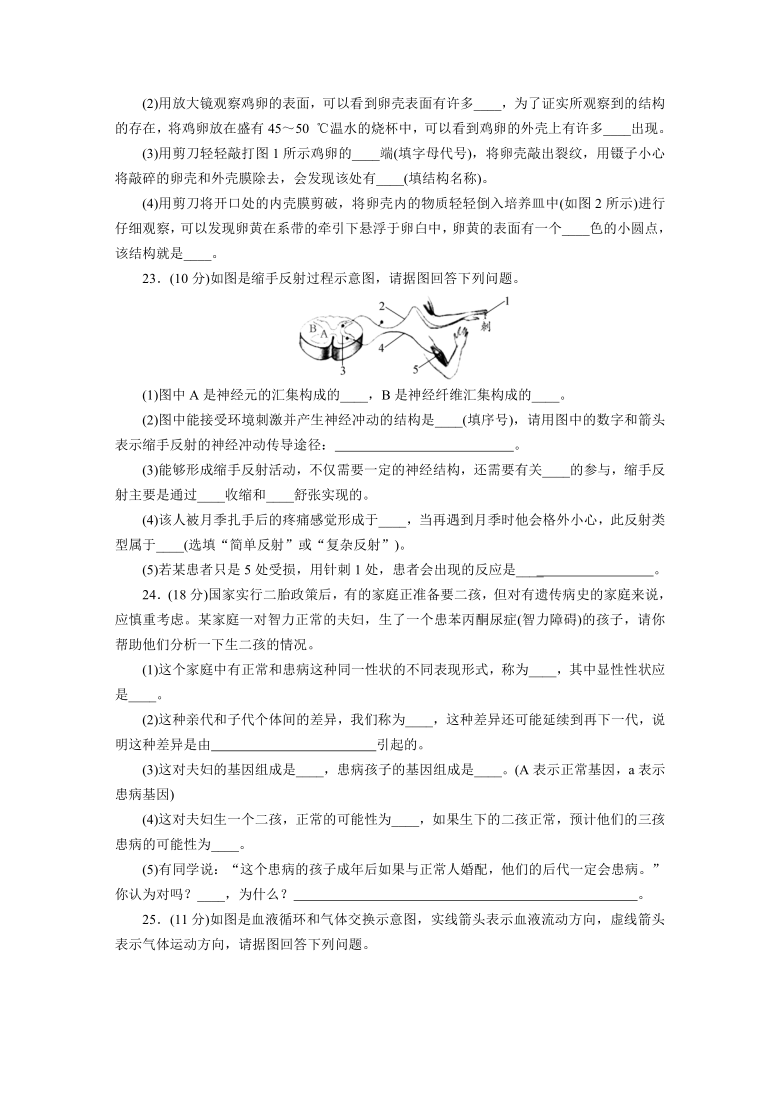 (2)用放大镜观察鸡卵的表面，可以看到卵壳表面有许多____，为了证实所观察到的结构
的存在，将鸡卵放在盛有 45～50 ℃温水的烧杯中，可以看到鸡卵的外壳上有许多____出现。
(3)用剪刀轻轻敲打图 1 所示鸡卵的____端(填字母代号)，将卵壳敲出裂纹，用镊子小心
将敲碎的卵壳和外壳膜除去，会发现该处有____(填结构名称)。
(4)用剪刀将开口处的内壳膜剪破，将卵壳内的物质轻轻倒入培养皿中(如图 2 所示)进行
仔细观察，可以发现卵黄在系带的牵引下悬浮于卵白中，卵黄的表面有一个____色的小圆点，
该结构就是____。
23．(10 分)如图是缩手反射过程示意图，请据图回答下列问题。
1
2
刺
B
A
4
3
5
(1)图中 A 是神经元的汇集构成的____，B 是神经纤维汇集构成的____。
(2)图中能接受环境刺激并产生神经冲动的结构是____(填序号)，请用图中的数字和箭头
表示缩手反射的神经冲动传导途径：__________________________。
(3)能够形成缩手反射活动，不仅需要一定的神经结构，还需要有关____的参与，缩手反
射主要是通过____收缩和____舒张实现的。
(4)该人被月季扎手后的疼痛感觉形成于____，当再遇到月季时他会格外小心，此反射类
型属于____(选填“简单反射”或“复杂反射”)。
(5)若某患者只是 5 处受损，用针刺 1 处，患者会出现的反应是____________________。
24．(18 分)国家实行二胎政策后，有的家庭正准备要二孩，但对有遗传病史的家庭来说，
应慎重考虑。某家庭一对智力正常的夫妇，生了一个患苯丙酮尿症(智力障碍)的孩子，请你
帮助他们分析一下生二孩的情况。
(1)这个家庭中有正常和患病这种同一性状的不同表现形式，称为____，其中显性性状应
是____。
(2)这种亲代和子代个体间的差异，我们称为____，这种差异还可能延续到再下一代，说
明这种差异是由________________________引起的。
(3)这对夫妇的基因组成是____，患病孩子的基因组成是____。(A 表示正常基因，a 表示
患病基因)
(4)这对夫妇生一个二孩，正常的可能性为____，如果生下的二孩正常，预计他们的三孩
患病的可能性为____。
(5)有同学说：“这个患病的孩子成年后如果与正常人婚配，他们的后代一定会患病。”
你认为对吗？____，为什么？__________________________________________________。
25．(11 分)如图是血液循环和气体交换示意图，实线箭头表示血液流动方向，虚线箭头
表示气体运动方向，请据图回答下列问题。